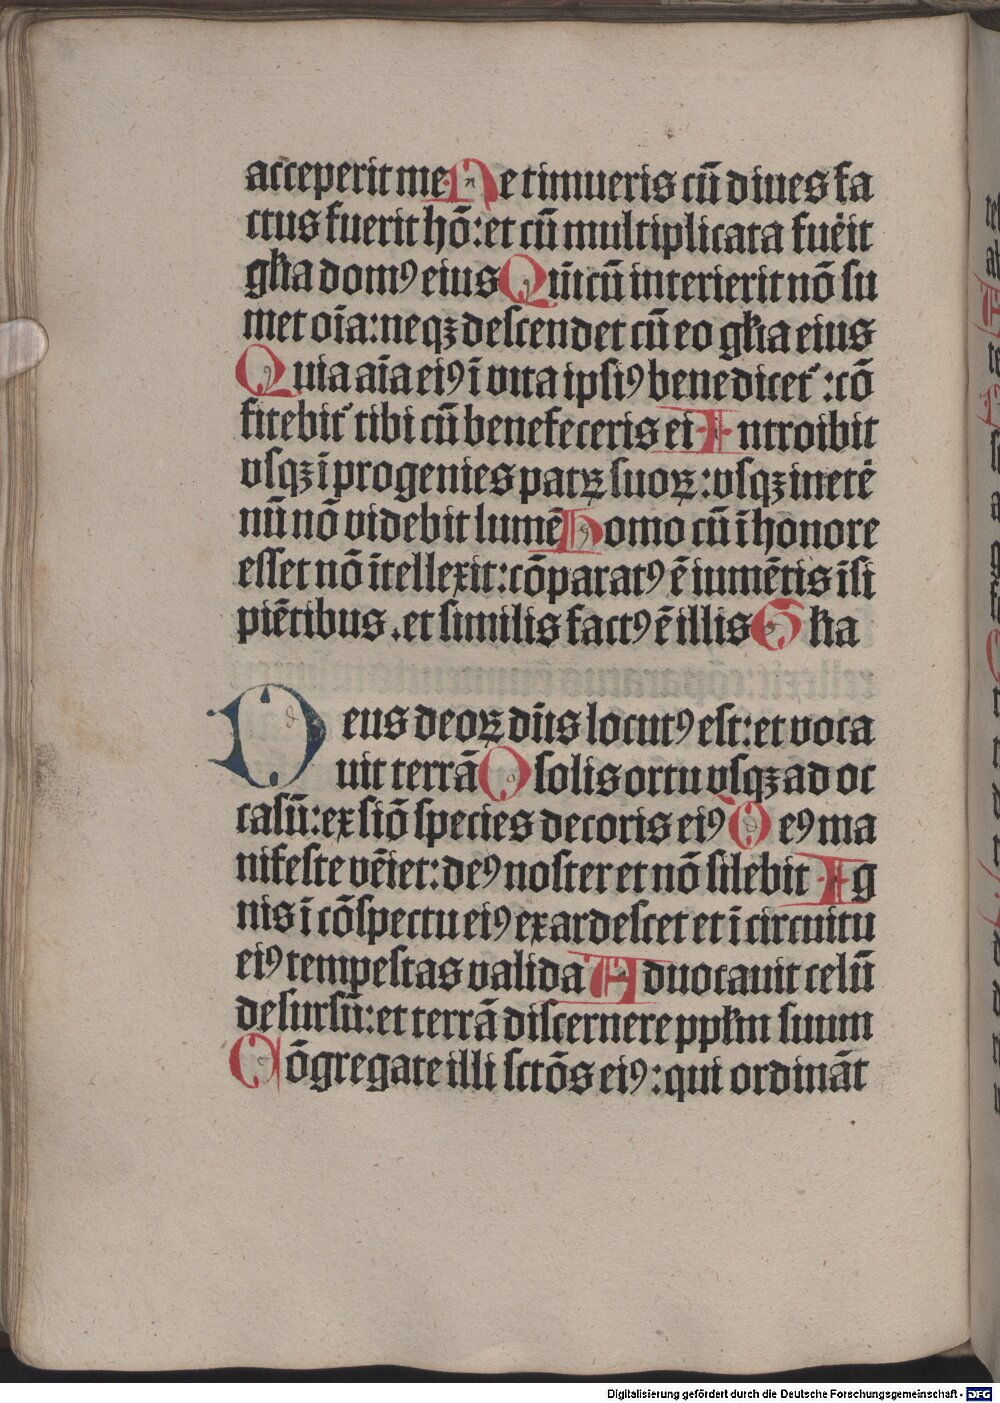 acceperit me Ne timueris cū diues fa
ctus fuerit hō: et cū multiplicata fuēit
gl̄ia domꝰ eius Qm̄ cū interierit nō su
met oīa: neqꝫ descendet cū eo gl̄ia eius
Quia aīa eiꝰ ī vita ipsiꝰ benedicet᷑: cō
fitebit᷑ tibi cū benefeceris ei Introibit
vsqꝫ ī progenies patrꝝ suoꝝ: vsqꝫ in etē
nū nō videbit lumē Homo cū ī honore
esset nō ītellexit: cōparatꝰ ē iumētis īsi
piētibus. et similis factꝰ ē illis Gl̄ia
Deus deoꝝ dn̄s locutꝰ est: et voca
uit terrā O solis ortu vsqꝫ ad oc
casū: ex siō species decoris eiꝰ Deꝰ ma
nifeste vēiet: deꝰ noster et nō silebit Ig
nis ī cōspectu eiꝰ exardescet et ī circuitu
eiꝰ tempestas valida Aduocauit celū
desursū: et terrā discernere ppl̄m suum
Cōgregate illi sctōs eiꝰ: qui ordināt
Digitalisierung gefördert durch die Deutsche Forschungsgemeinschaft - DFG